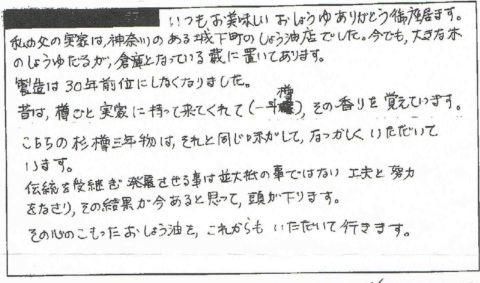 いつもお美味しいおしょうゆありがとう御座居ます。
私の父の実家は、神奈川のある城下町のしょう油店でした。今でも、大きな木
のしょうゆたるが、倉庫となっている蔵に置いてあります。
製造は30年前位にしなくなりました。
昔は、樽ごと実家に持って来てくれて(一斗樽)、その香りを覚えています。
こちらの杉樽三年物は、それと同じ味がして、なつかしくいただいて
います。
伝統を受継ぎ発展させる事は並大抵の事ではない工夫と努力
をなさり、その結果が今あると思って、頭が下ります。
その心のこもったおしょう油を、これからもいただいて行きます。